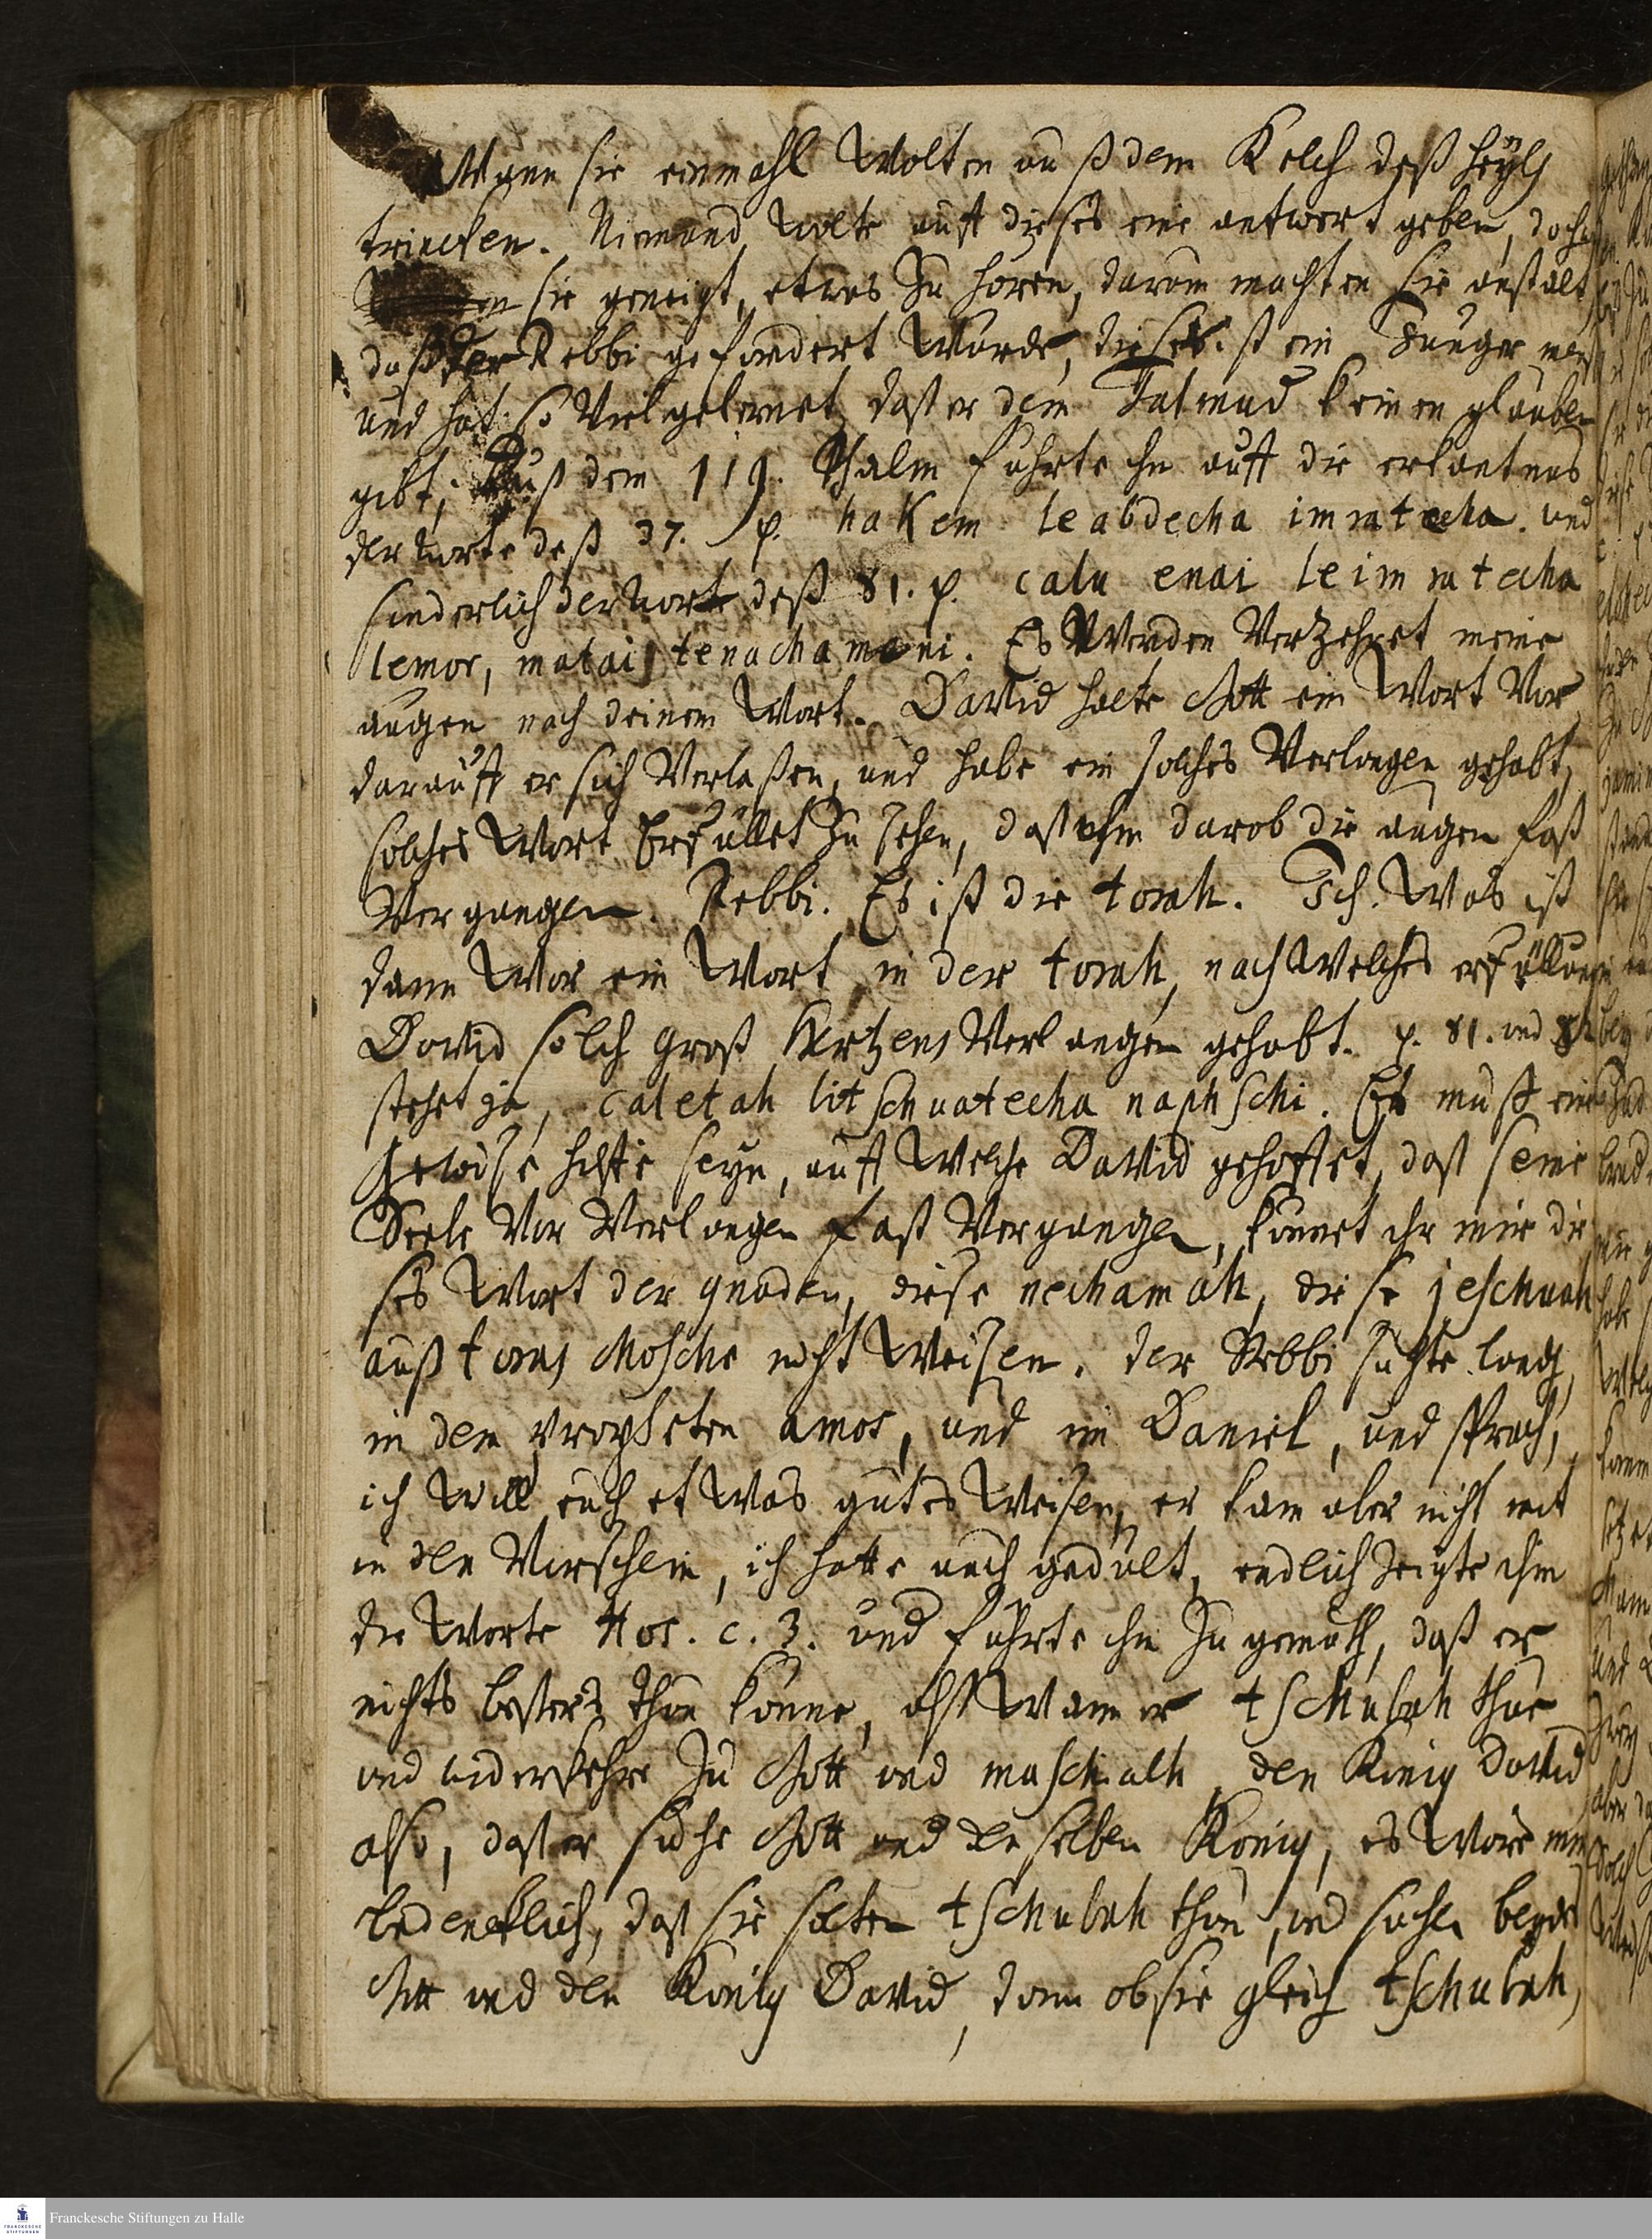 Wann sie einmahl wolten auß dem Kelch deß heyls
trincken. Niemand wolte auff dießes eine antwort geben, doch
sie geneigt, etwas zu hören, darum machten sie anstalt
daß der Rebbi gefordert würde, dieser ist ein Junger
und hat so viel gelernet, daß er dem Talmud keinen glauben
gibt; Auß dem 119. Psalm führte ihn auff die erkäntnus
der worte deß 37. p. hakem leabdecha imratecha. und
sonderlich der worte deß 81. p. calu enai leimratecha
lemor, matai tenachameni. Es werden verzehret meine
augen nach deinem Wort. David hatte Gott ein Wort vor
darauff er sich verlaßen, und habe ein solches verlangen gehabt,
solches Wort erfüllet zu sehen, daß ihm darob die augen fast
vergangen. Rebbi. Es ist die torah. Ich. Was ist
dann vor ein Wort in der torah, nach welches erfüllung
David solch groß hertzens verlangen gehabt. p. 81. und
stehet ja, caletah litschuatecha naphschi. Es muß eine
gewiße hilffe seyn, auff welche David gehoffet, daß seine
Seele vor verlangen fast vergangen, könnet ihr mir die
ses Wort der gnaden, diese nechamah, diese jeschuah
auß toras Mosche nicht weisen. der Rebbi suchte lang,
in dem propheten amos, und im Daniel, und sprach,
ich will euch etwas gutes weisen, er kam aber nicht mit
in den vorschein, ich hatte auch gedult, endlich zeigte ihm
die Worte Hos. c. 3. und führte ihm zu gemüth, daß er
nichts besters thun könne, alß wann er tschubah thue
und widerkehre zu Gott und maschiach, den König David
also, daß er suche Gott und denselben König, es wäre
bedencklich, daß sie solten tschubah thun, und suchen beyde
Gott und den König David, dann ob sie gleich tschubah,
Franckesche Stiftungen zu Halle